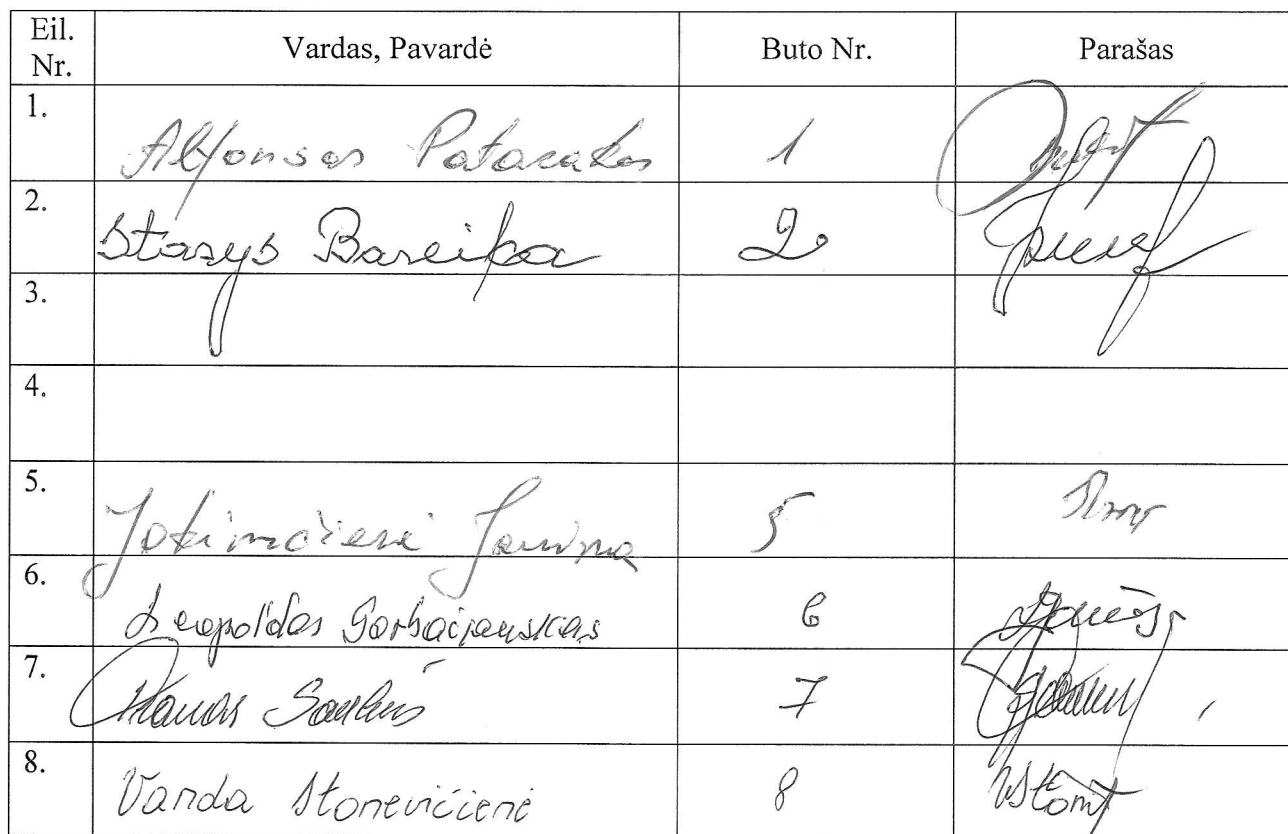 Eil. Nr. Vardas, Pavardė Buto Nr. Parašas
1. Alfonsas Patarakas 1
2. Stasys Bareika 2.
3.
4.
5. Jokimčienė Janina 5
6. Leopoldas Gorbačiauskas 6
7. Pranas 7
8. Vanda Stonevičienė 8